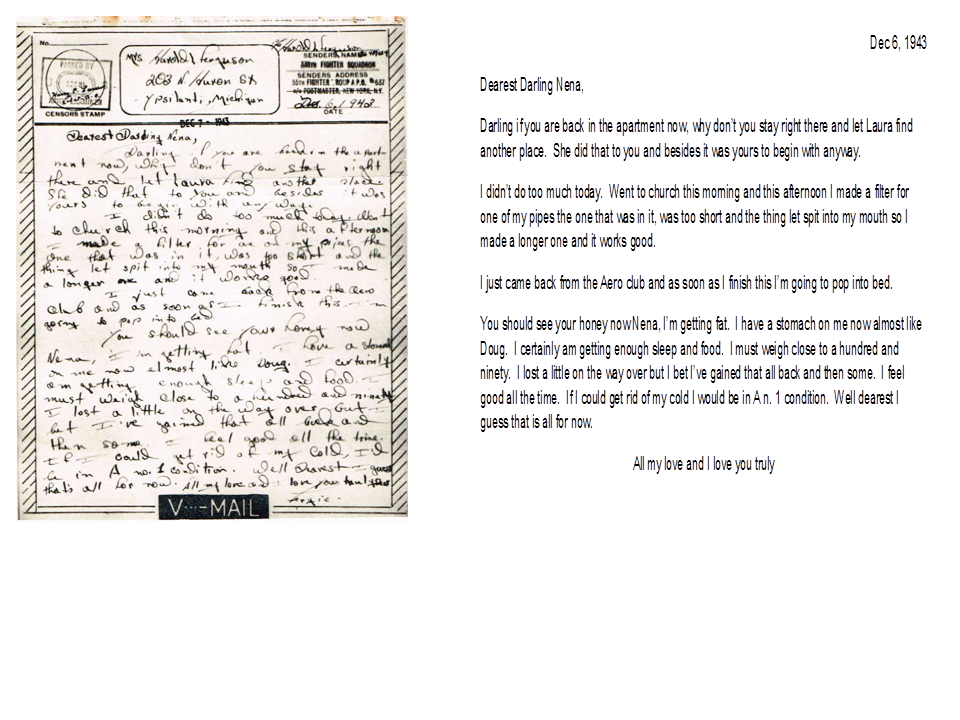 No.
PASSED BY
CENSORS STAMP
Mrs Harold Ferguson
203 N Huron St
Ypsilanti, Michigan
Harold Ferguson
SENDERS NAME
FIGHTER SQUADRON
SENDERS ADDRESS
55th FIGHTER GROUP A.P.O. #637
c/o POSTMASTER, NEW YORK, N.Y.
Dec. 6, 1943
DATE
DEC 7 - 1943
Dearest Darling Nena,
Darling if you are back in the apart-
ment now, why don't you stay right
there and let Laura find another place
She did that to you and besides it was
yours to begin with anyway.
I didn't do too much today. Went
to church this morning and this afternoon
I made a filter for one of my pipes the
one that was in it, was too short and the
thing let spit into my mouth so I made
a longer one and it works good.
I just came back from the Aero
club and as soon as I finish this I'm
going to pop into bed
You should see your honey now
Nena, I'm getting fat. I have a stomach
on me now almost like Doug. I certainly
am getting enough sleep and food. I
must weigh close to a hundred and ninety
I lost a little on the way over but I
bet I've gained that all back and
then some. I feel good all the time.
If I could get rid of my cold, I'd
be in A no. 1 condition. Well dearest I guess
that's all for now. All my love and I love you truly
V···-MAIL
Dec 6, 1943
Dearest Darling Nena,
Darling if you are back in the apartment now, why don't you stay right there and let Laura find
another place. She did that to you and besides it was yours to begin with anyway.
I didn't do too much today. Went to church this morning and this afternoon I made a filter for
one of my pipes the one that was in it, was too short and the thing let spit into my mouth so I
made a longer one and it works good.
I just came back from the Aero club and as soon as I finish this I'm going to pop into bed.
You should see your honey now Nena, I'm getting fat. I have a stomach on me now almost like
Doug. I certainly am getting enough sleep and food. I must weigh close to a hundred and
ninety. I lost a little on the way over but I bet I've gained that all back and then some. I feel
good all the time. If I could get rid of my cold I would be in A n. 1 condition. Well dearest I
guess that is all for now.
All my love and I love you truly